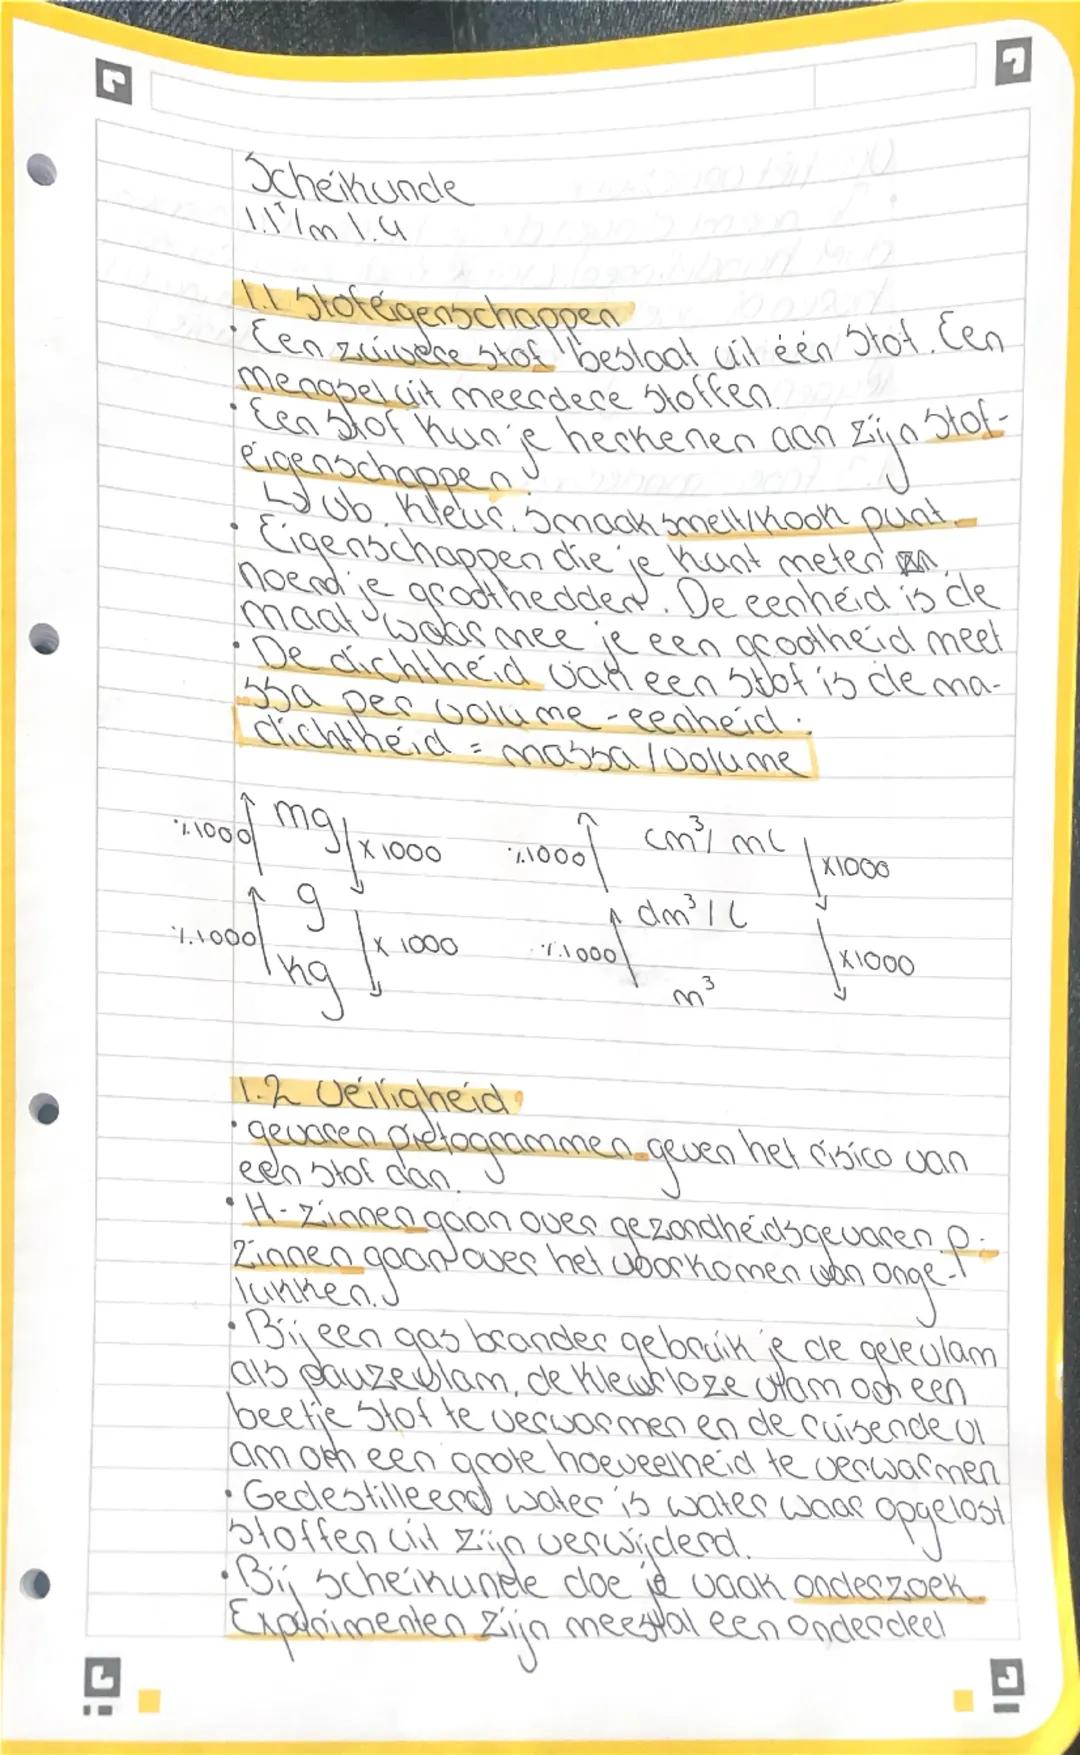 Scheikunde
1.1 t/m 1.4
1.1 Stofeigenschappen
• Een zuivere stof bestaat uit één stof. Een
mengsel uit meerdere stoffen.
• Een stof kun je herkenen aan zijn stof-
eigenschappen.
↳ vb. kleur, smaak smelt/kook punt.
• Eigenschappen die je kunt meten
noemd je groothedden. De eenheid is de
maat waarmee je een grootheid meet
• De dichtheid van een stof is de ma-
ssa per volume-eenheid.
dichtheid = massa / volume
mg
cm³/ mL
:1000
x 1000
:1000
x1000
g
dm³ / L
:1000
x 1000
:1000
x1000
kg
m³
1.2 Veiligheid
• gevaren pictogrammen geven het risico van
een stof aan.
• H-zinnen gaan over gezondheidsgevaren p-
zinnen gaan over het voorkomen van onge-
lukken.
• Bij een gas brander gebruik je de gele vlam
als pauzevlam, de kleurloze vlam om een
beetje stof te verwarmen en de ruisende vl
am om een grote hoeveelheid te verwarmen
• Gedestilleerd water is water waar opgelost
stoffen uit zijn verwijderd.
• Bij scheikunde doe je vaak onderzoek
Experimenten zijn meestal een onderdeel